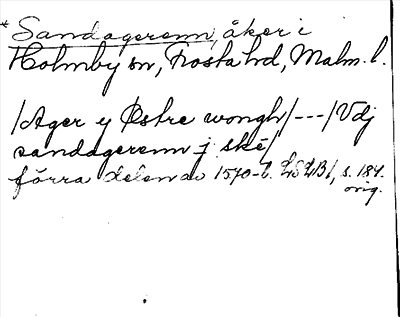 *Sandagerenn, åker i
Holmby sn, Frosta hd, Malm. l.
/Ager y Østre wongh/---/Vdj
sandagerenn j skè/
förra delen av 1570-t. LSLB1, s. 184.
orig.